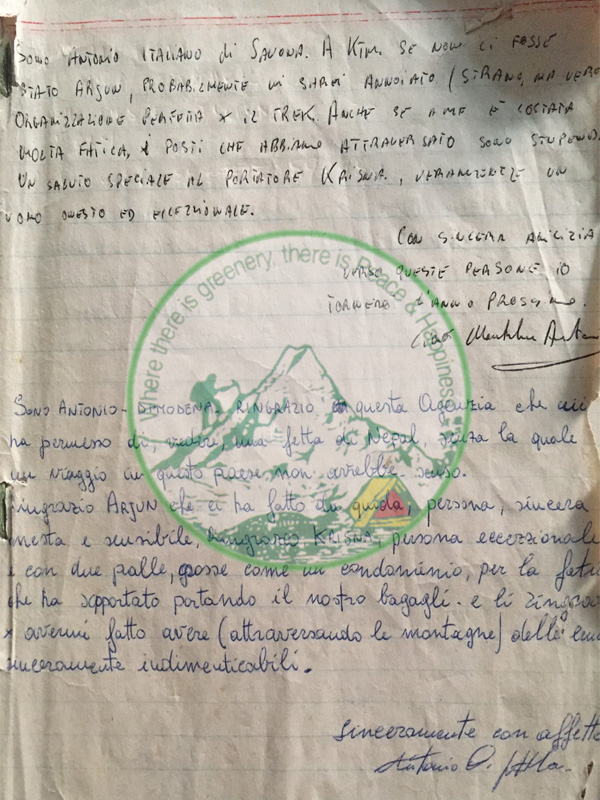 SONO ANTONIO ITALIANO di SAVONA. A KTM. SE NON CI FOSSE
STATO ARJUN, PROBABILMENTE MI SAREI ANNOIATO (STRANO, MA VERO
ORGANIZZAZIONE PERFETTA X IL TREK. ANCHE SE A ME È COSTATA
MOLTA FATICA, I POSTI CHE ABBIAMO ATTRAVERSATO SONO STUPENDI.
UN SALUTO SPECIALE AL PORTATORE KRISNA, VERAMENTE UN
UOMO ONESTO ED ECCEZIONALE.
CON SINCERA AMICIZIA
VERSO QUESTE PERSONE IO
TORNERÒ L'ANNO PROSSIMO.
Ciao
Where there is greenery, there is Peace & Happiness
SONO ANTONIO - DI MODENA - RINGRAZIO questa Agenzia che mi
ha permesso di, vedere, una fetta di Nepal, senza la quale
un viaggio in questo paese, non avrebbe senso.
ingrazio ARJUN che ci ha fatto da guida, persona, sincera
onesta e sensibile, ringrazio KRISNA, persona eccezionale
e con due palle, grosse come un condominio, per la fatica
che ha sopportato portando il nostro bagagli. e li ringrazio
x avermi fatto avere (attraversando le montagne) delle
sinceramente indimenticabili.
sinceramente con affetto
Antonio